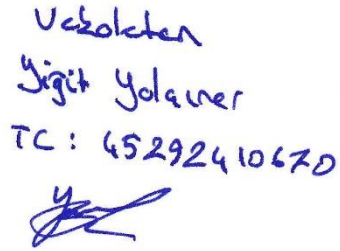 Vekaleten
Yiğit Yolaçıner
TC : 45292410670